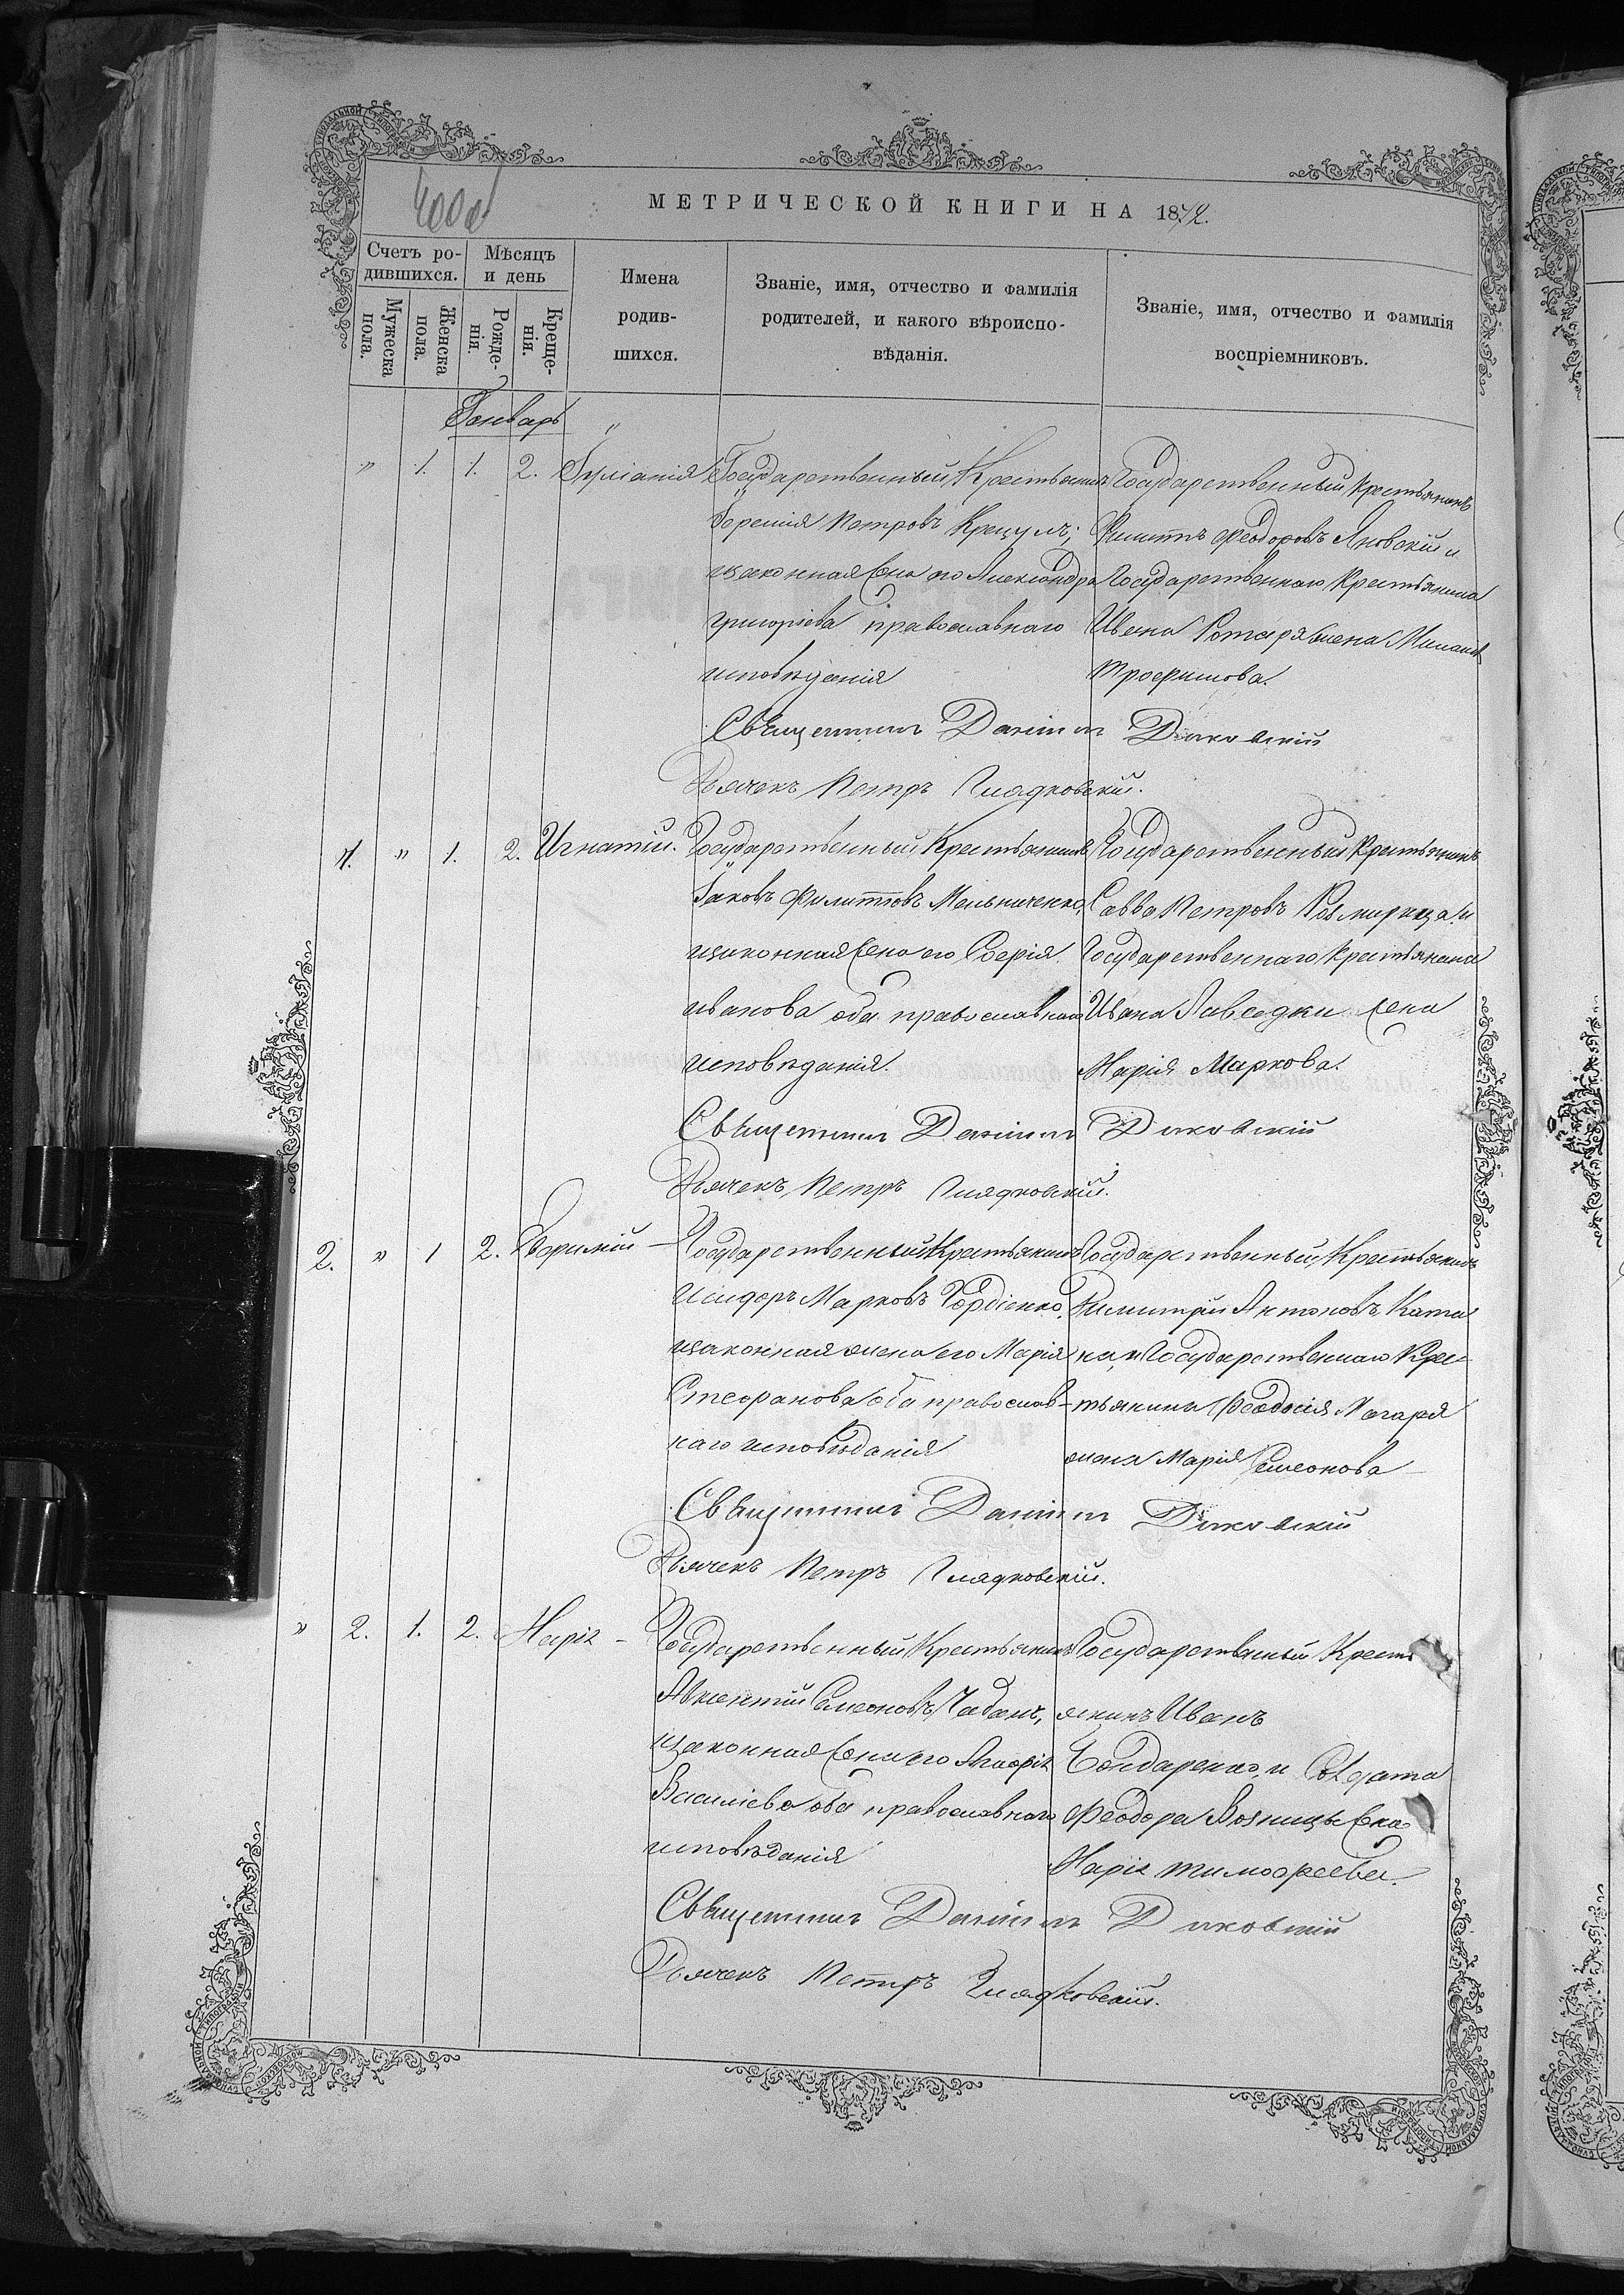 МЕТРИЧЕСКОЙ КНИГИ НА 1872.
Счетъ ро-
дившихся.
Мѣсяцъ
и день
Мужеска
пола.
Женска
пола.
Рожде-
нія.
Креще-
нія.
Имена
родив-
шихся.
Званіе, имя, отчество и фамилія
родителей, и какого вѣроиспо-
вѣданія.
Званіе, имя, отчество и фамилія
воспріемниковъ.
Генварь
" 1. 1. 2. Іуліанія
Государственный Крестьянинъ
Іеремія Петровъ Крецулъ;
и законная жена его Александра
Григоріева православнаго
исповѣданія
Государственный крестьянинъ
Филиппъ Феодоровъ Яновскій и
Государственнаго Крестьянина
Ивана Ротаря жена
Трофимова.
Священникъ Даніилъ Диковскій
Дьячекъ Петръ Гладковскій.
1. " 1. 2. Игнатій.
Государственный Крестьянинъ
Іаковъ Филипповъ Мельниченко,
и законная жена его Софія
Иванова оба православнаго
исповѣданія.
Государственный Крестьянинъ
Савва Петровъ и
Государственнаго Крестьянина
Ивана жена
Марія Маркова.
Священникъ Даніилъ Диковскій
Дьячекъ Петръ Гладковскій.
2. " 1 2.
Государственный Крестьянинъ
Исидоръ Марковъ Гордіенко,
и законная жена его Марія
Стефанова оба православ-
наго исповѣданія
Государственный Крестьянинъ
Димитрій Антоновъ Ката
на, и Государственнаго Крес-
тьянина Феодосія
жена Марія Симеонова
Священникъ Даніилъ Диковскій
Дьячекъ Петръ Гладковскій.
" 2. 1. 2. Марія
Государственный Крестьянинъ
Авксентій Симеоновъ Чабанъ,
и законная жена его Агафія
Василіева оба православнаго
исповѣданія
Государственный Кресть
янинъ Иванъ
Бондаренко, и Солдата
Феодора Возницы жена
Марія Тимофеева.
Священникъ Даніилъ Диковскій
Дьячекъ Петръ Гладковскій.